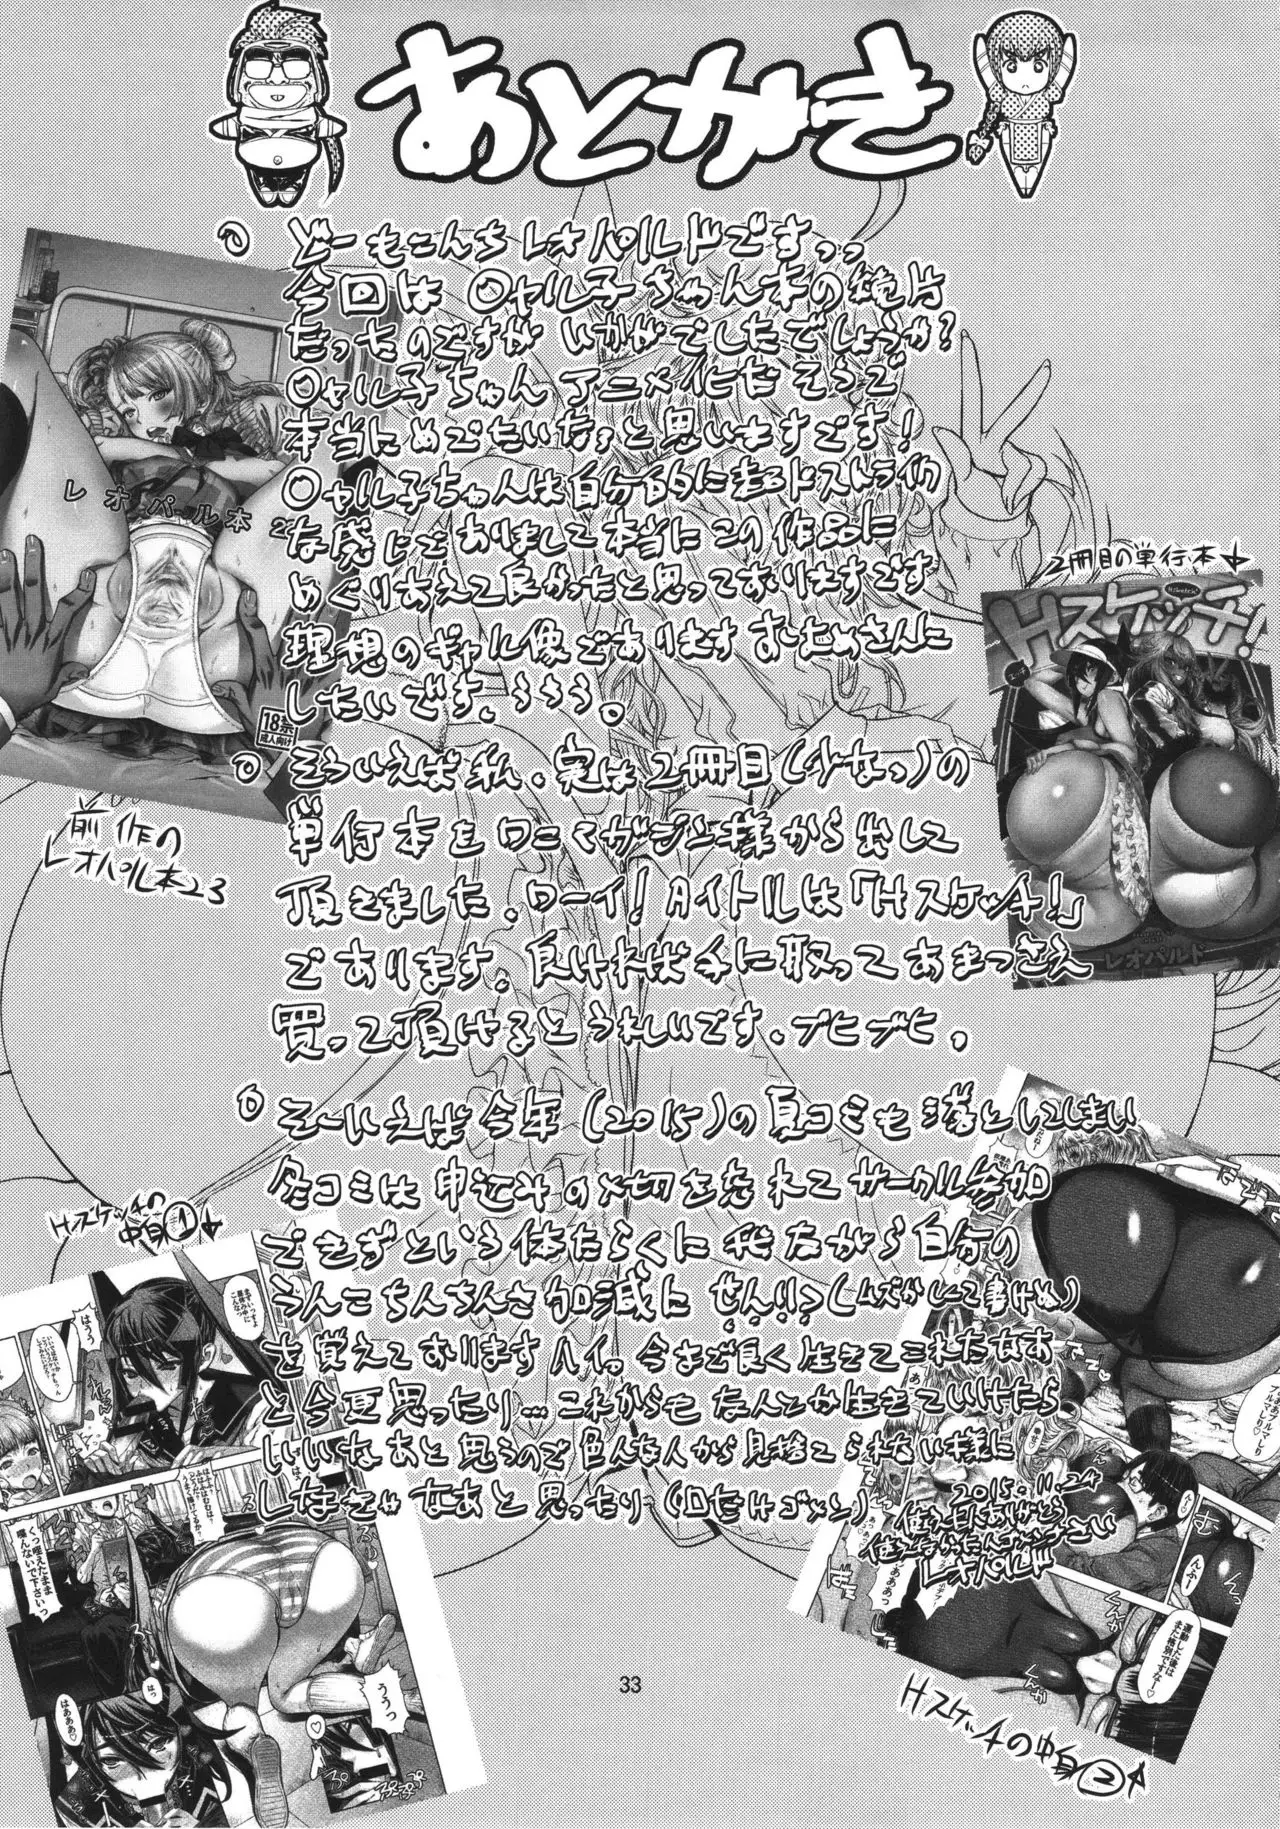 あとがき
どーもこんちレオパルドですっっ
今回は〇ャル子ちゃん本の続片
だったのですがいかがでしたでしょうか?
〇ャル子ちゃんアニメ化だそうで
本当にめでたいなっと思いますです!
〇ャル子ちゃんは自分的に超ドストライク
な感じでありまして本当にこの作品に
めぐりあえて良かったと思っておりますです
理想のギャル像でありますおためさんに
したいです、ううう。
そういえば私、実は2冊目(少なっ)の
単行本をワニマガジン様から出して
頂きました、ワーイ!タイトルは「Hスケッチ!」
であります。良ければ手に取ってあまつさえ
買って頂けるとうれしいです、ブヒブヒ。
そーいえば今年(2015)の夏コミも落としてしまい
冬コミは申込みの〆切を忘れてサークル参加
できずという体たらくに我ながら自分の
うんこちんちんさ加減にせん!!?(ムズかしくて書けぬ)
を覚えておりますハイ。今まで良く生きてこれたなあ
と今更思ったり…これからもなんとか生きていけたら
いいなあと思うので色んな人から見捨てられない様に
しなきゃなあと思ったり(口だけゴメン)
2015.11.24
レオパルド
レオパル本2
18禁
成人向け
前作の
レオパル本23
2冊目の単行本
Hスケッチ!
レオパルド
Hスケッチの
中身①
はうう
くっ咥えたまま
喋んないで下さいっ
うううっ
はっ
はあああ♡
ぷ
ぷぷぷ
んふー
運動した後は
また格別ですなー♡
くんか
くんか
Hスケッチの中身②
33